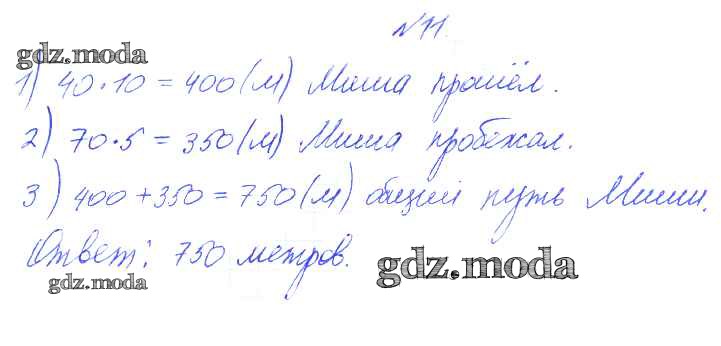 № 11.
gdz.moda
1) 40 · 10 = 400 (м) Миша прошёл.
2) 70 · 5 = 350 (м) Миша пробежал.
3) 400 + 350 = 750 (м) общий путь Миши.
Ответ: 750 метров.
gdz.moda
gdz.moda